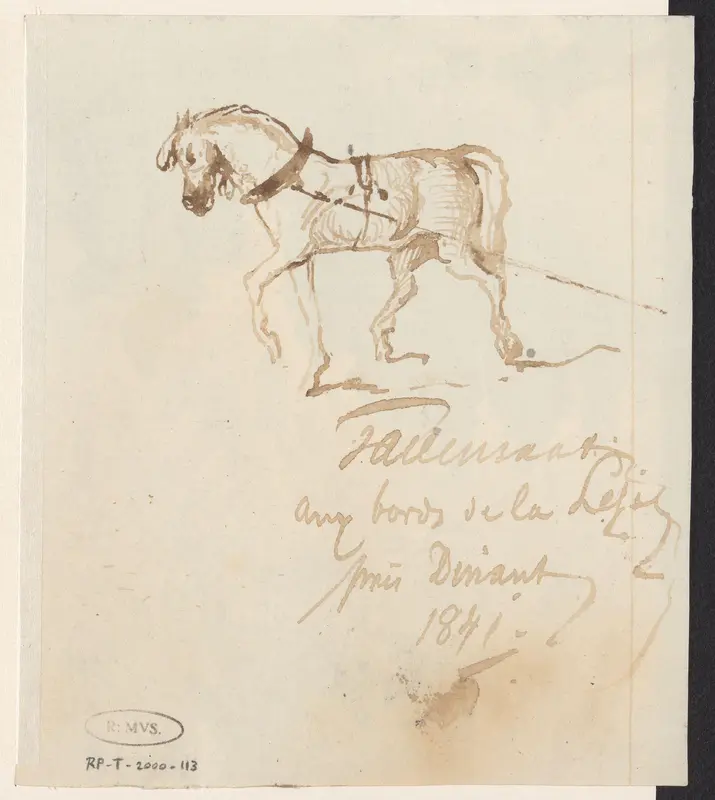 aux bords de la
près Dinant
1841.
R: MVS.
RP-T-2000-113